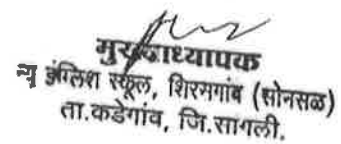 मुख्याध्यापक
न्यू इंग्लिश स्कूल, शिरसगांव (सोनसळ)
ता.कडेगांव, जि.सांगली.